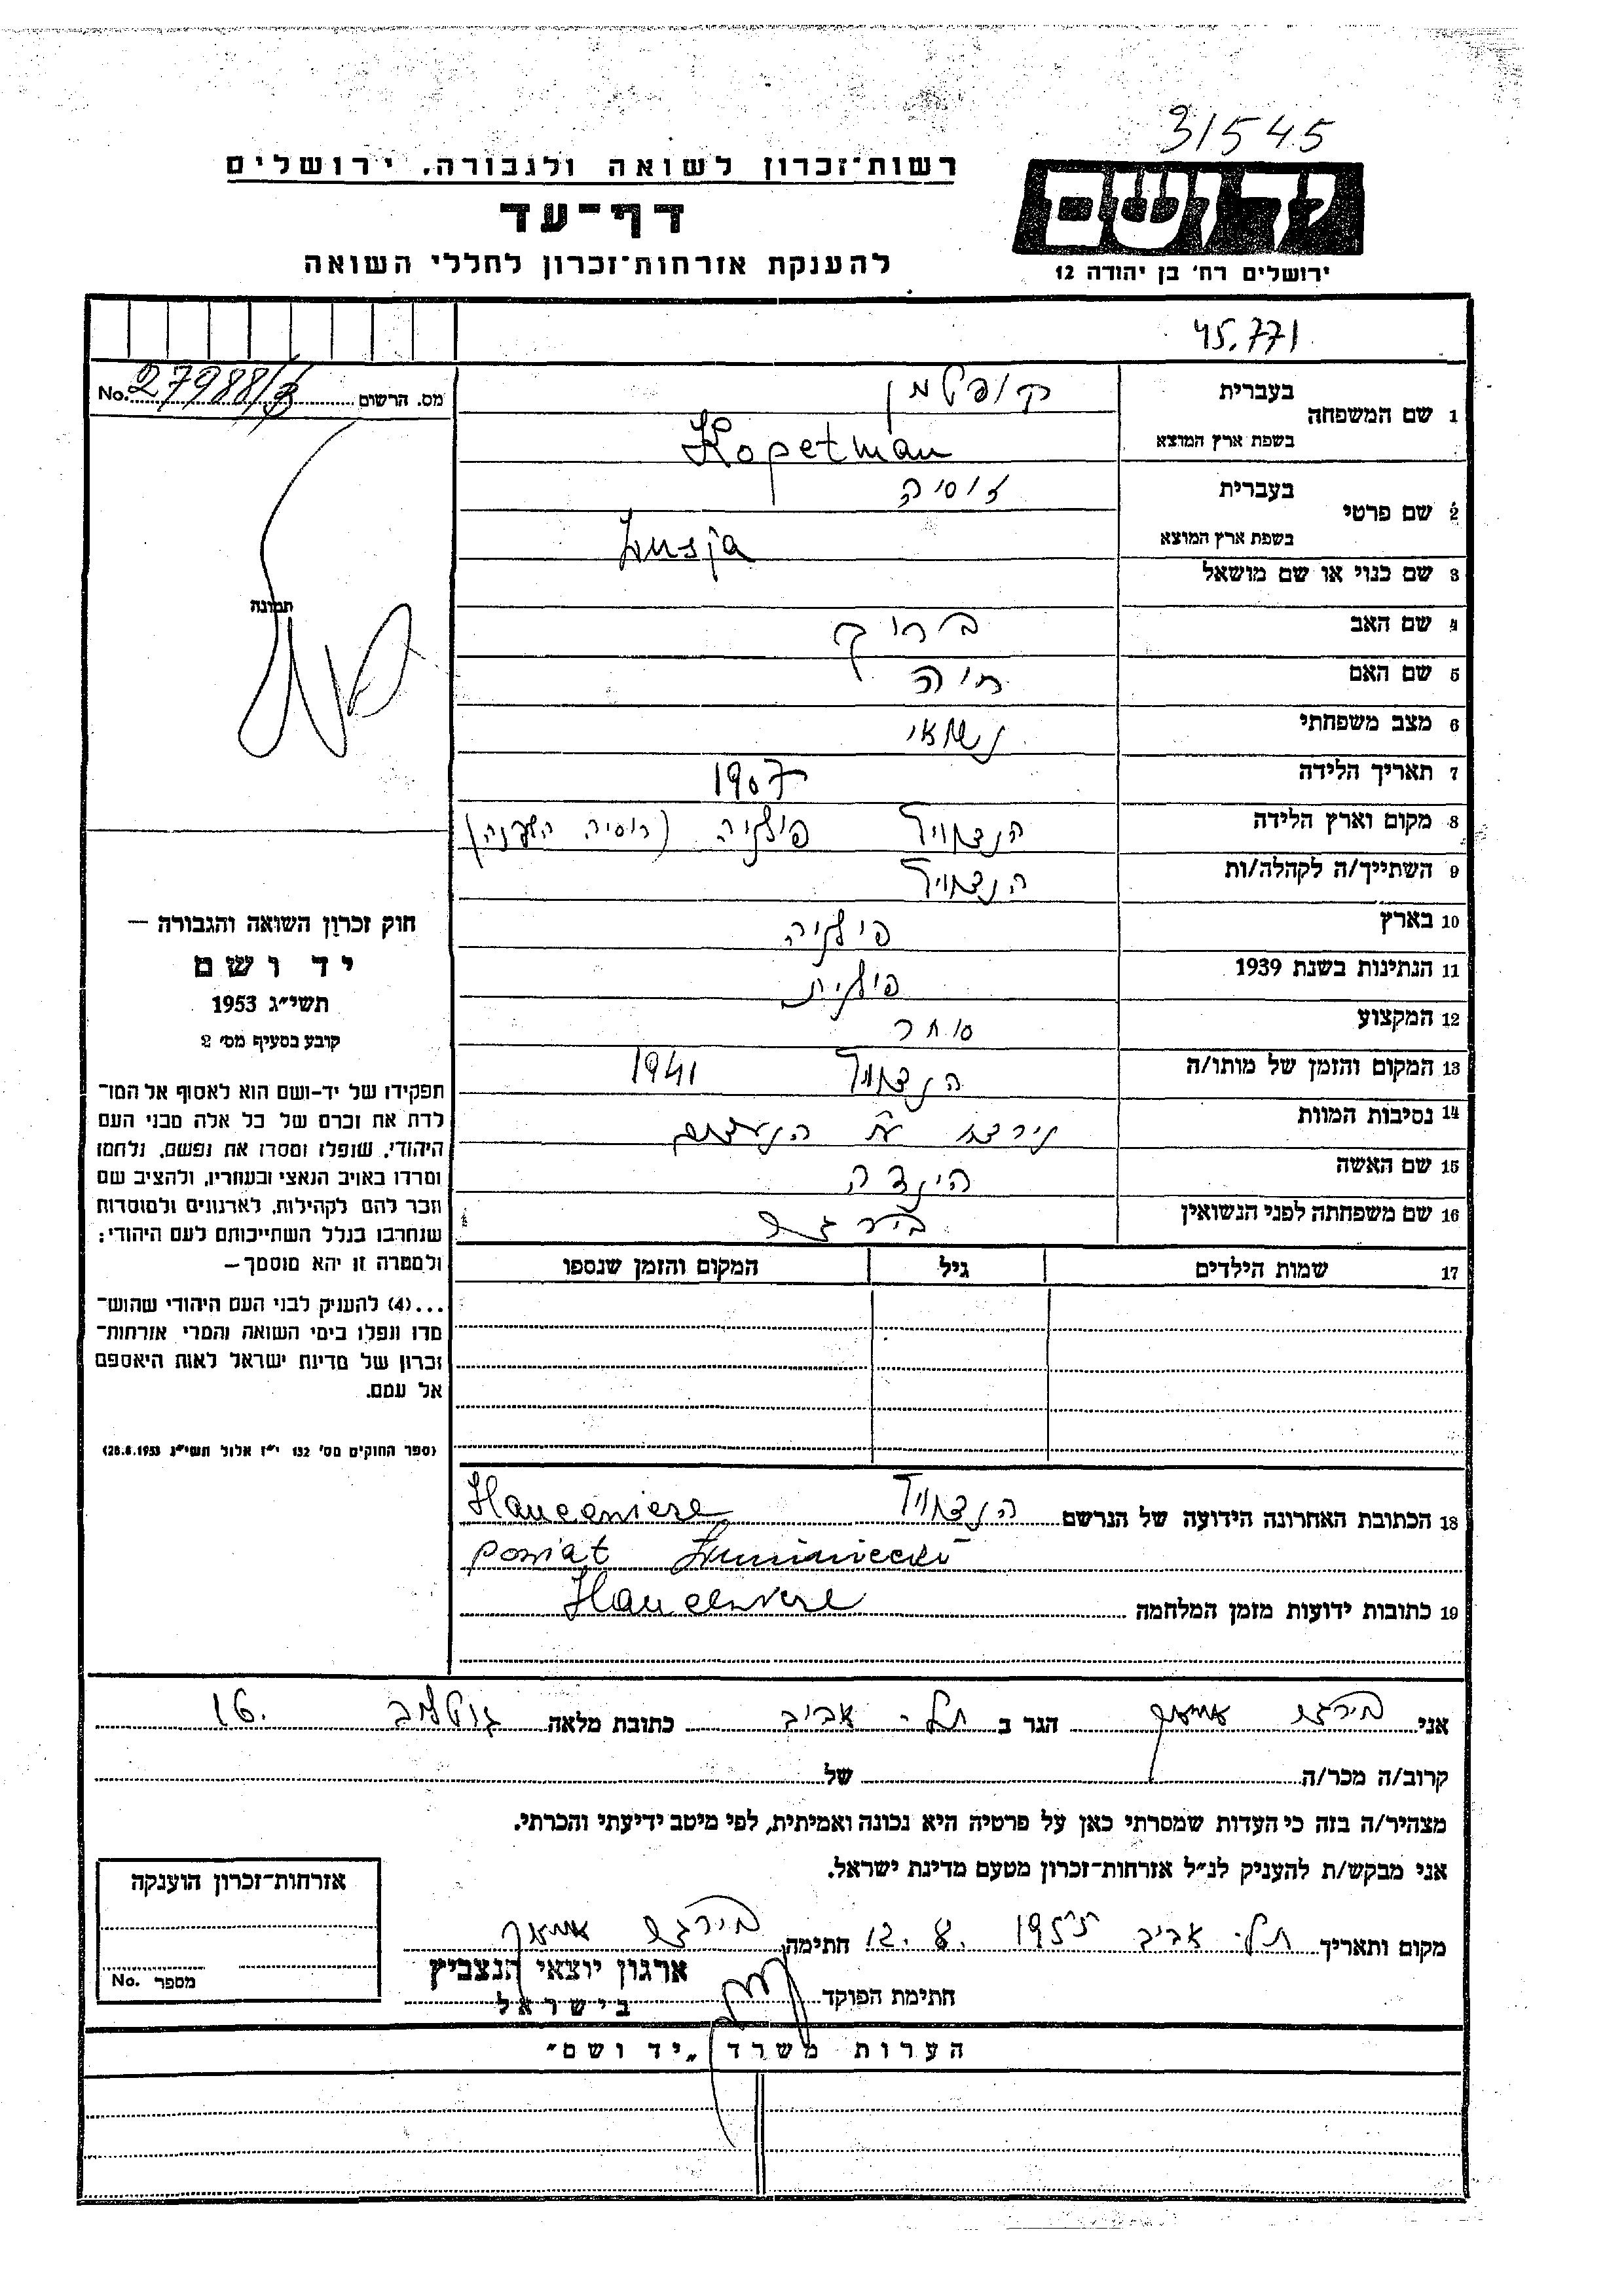 31545
רשות־זכרון לשואה ולגבורה. ירושלים
יד ושם
דף־עד
להענקת אזרחות־זכרון לחללי השואה
ירושלים רח' בן יהודה 12
45.771
No. 27988/3 מס. הרשום
1 שם המשפחה בעברית קופטמן
בשפת ארץ המוצא Kopetman
2 שם פרטי בעברית זוסיה
בשפת ארץ המוצא Zusja
3 שם כנוי או שם מושאל
תמונה
4 שם האב ברוך
5 שם האם חיה
6 מצב משפחתי נשואי
7 תאריך הלידה 1907
8 מקום וארץ הלידה הנצביץ פולניה (רוסיה הלבנה)
9 השתייך/ה לקהלה/ות הנצביץ
10 בארץ פולניה
11 הנתינות בשנת 1939 פולנית
12 המקצוע סוחר
13 המקום והזמן של מותו/ה הנצביץ 1941
14 נסיבות המוות
15 שם האשה הינדה
16 שם משפחתה לפני הנשואין
17 שמות הילדים גיל המקום והזמן שנספו
חוק זכרון השואה והגבורה —
יד ושם
תשי״ג 1953
קובע בסעיף מס' 2
תפקידו של יד-ושם הוא לאסוף אל המו־
לדת את זכרם של כל אלה מבני העם
היהודי, שנפלו ומסרו את נפשם, נלחמו
ומרדו באויב הנאצי ובעוזריו, ולהציב שם
וזכר להם לקהילות, לארגונים ולמוסדות
שנחרבו בגלל השתייכותם לעם היהודי;
ולמטרה זו יהא מוסמך —
...(4) להעניק לבני העם היהודי שהוש־
מדו ונפלו בימי השואה והמרי אזרחות־
זכרון של מדינת ישראל לאות היאספם
אל עמם.
(ספר החוקים מס' 132 י״ז אלול תשי״ג 28.8.1953)
18 הכתובת האחרונה הידועה של הנרשם הנצביץ Hancewicze
powiat Łuniniecki
19 כתובות ידועות מזמן המלחמה Hancewicze
אני הגר ב תל-אביב כתובת מלאה גוטליב 16.
קרוב/ה מכר/ה של
מצהיר/ה בזה כי העדות שמסרתי כאן על פרטיה היא נכונה ואמיתית, לפי מיטב ידיעתי והכרתי.
אני מבקש/ת להעניק לנ״ל אזרחות־זכרון מטעם מדינת ישראל.
מקום ותאריך תל-אביב 1955 .8 .12 חתימה
ארגון יוצאי הנצביץ
בישראל
חתימת הפוקד
אזרחות־זכרון הוענקה
מספר No.
הערות משרד „יד ושם״